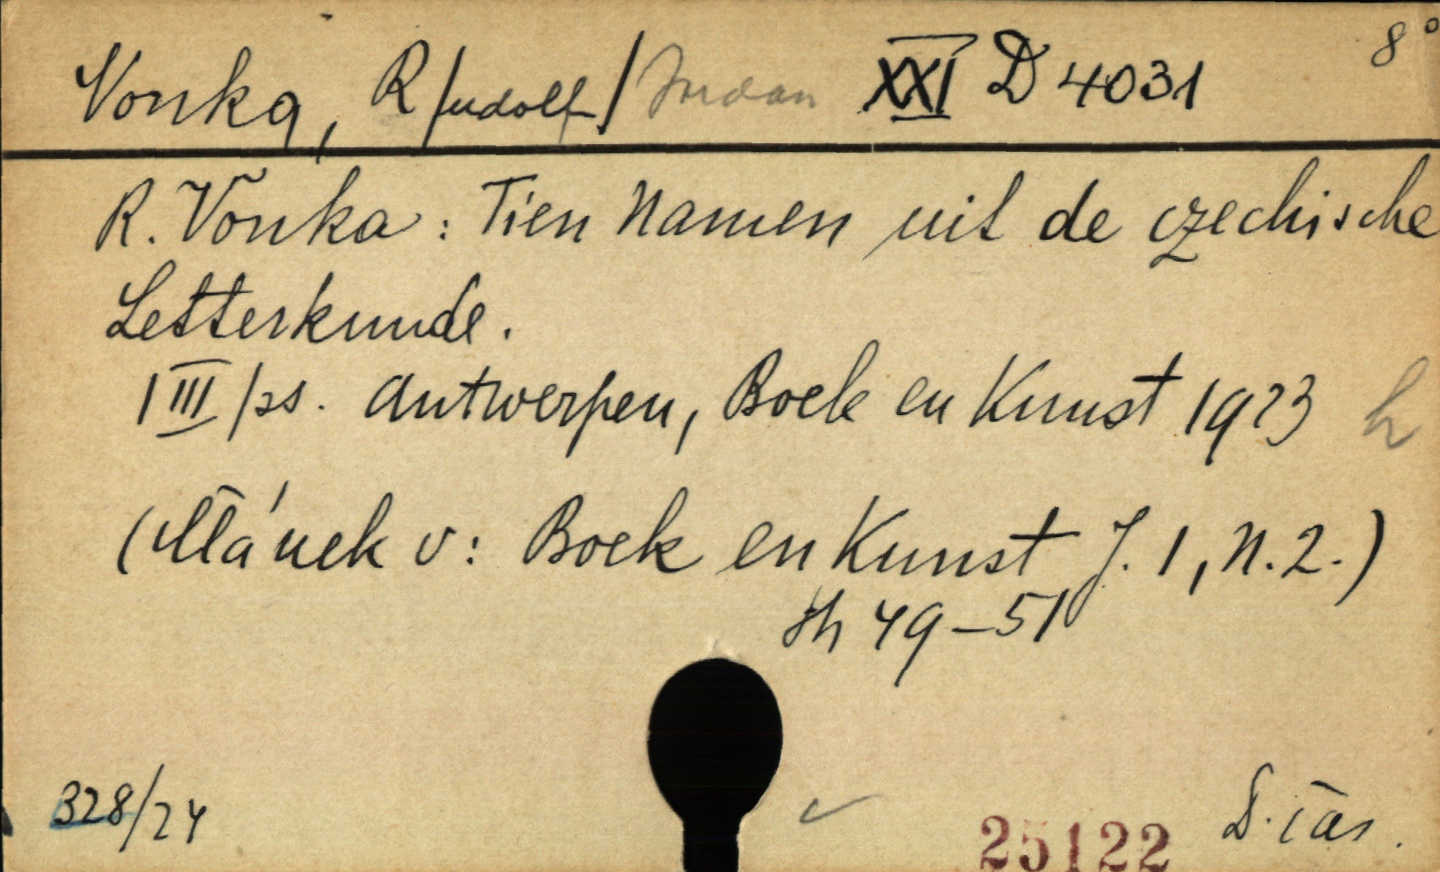 Vonka, R/udolf/ Jordan XXI D 4031 8°
R. Vonka: Tien Namen uit de czechische
Letterkunde.
1 III /ss. Antwerpen, Boek en Kunst 1923 h
(Článek v: Boek en Kunst J. 1, N. 2.)
49–51
328/24
25122
D. čas.